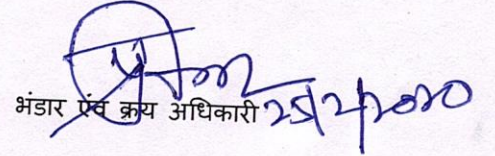 भंडार एंव क्रय अधिकारी 25/2/2020